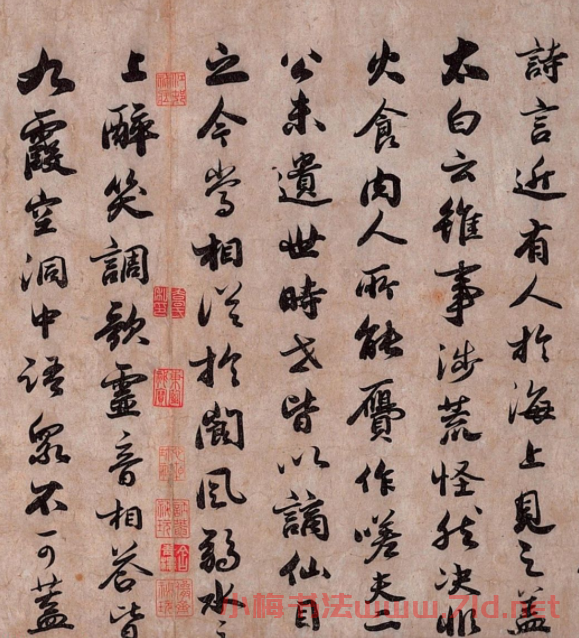 詩言近有人於海上見之蓋
太白云雖事涉荒怪然决非
火食肉人所能贗作嗟夫二
公未遺世時世皆以謫仙目
之今當相從於閬風弱水之
上醉笑調歌靈音相荅皆
九霞空洞中語衆不可蓋
小梅书法www.7ld.net